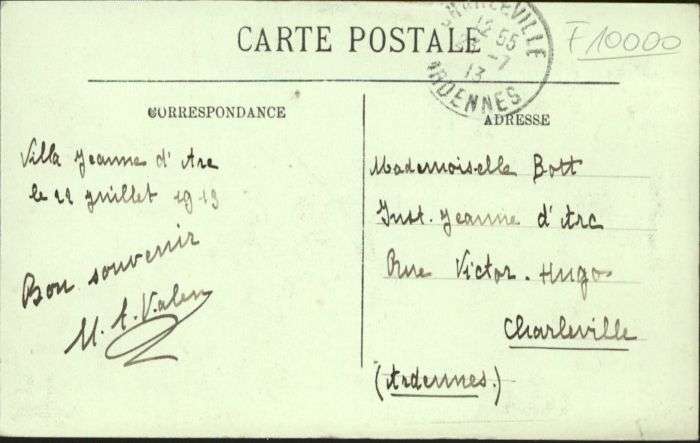 CARTE POSTALE
F 10000
CHARLEVILLE
12 55
-7
13
ARDENNES
CORRESPONDANCE
Villa Jeanne d'Arc
le 22 juillet 1913
Bon souvenir
ADRESSE
Mademoiselle Bott
Inst. Jeanne d'Arc
Rue Victor-Hugo
Charleville
(Ardennes.)